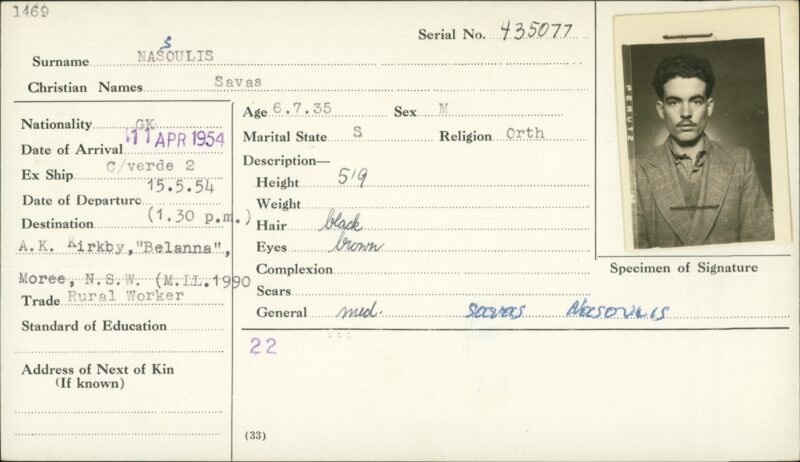 1469
Serial No. 435077
S
Surname NASOULIS
Christian Names Savas
Nationality GK
Date of Arrival 11 APR 1954
Ex Ship C/verde 2
Date of Departure 15.5.54
Destination (1.30 p.m.)
A.K. Kirkby,"Belanna",
Moree, N.S.W. (M.IL.1990
Trade Rural Worker
Standard of Education
Address of Next of Kin
(If known)
Age 6.7.35 Sex M
Marital State S Religion Orth
Description—
Height 5'9
Weight
Hair black
Eyes brown
Complexion
Scars
General med.
22
(33)
PERUTZ
Specimen of Signature
Savas Nasoulis